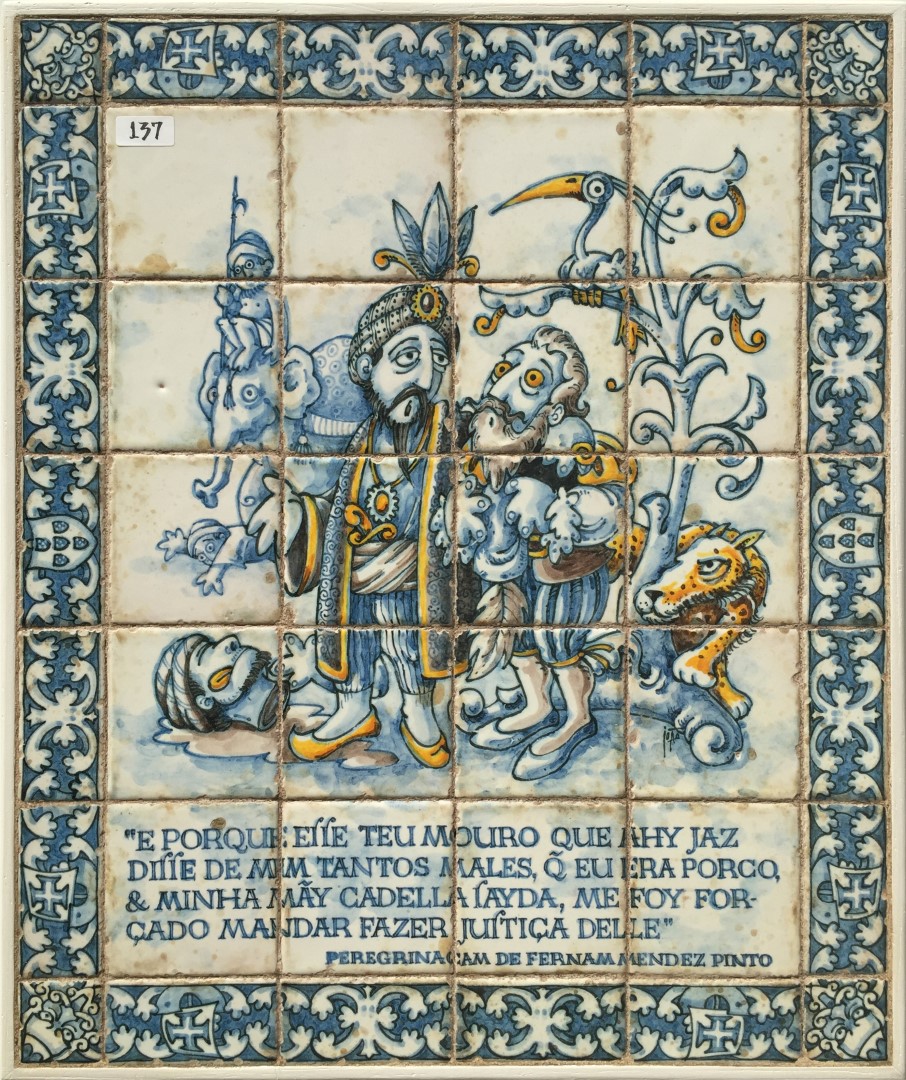 137
"E PORQUE EſſE TEU MOURO QUE AHY JAZ
DIſſE DE MIM TANTOS MALES, Q̃ EU ERA PORCO,
& MINHA MÃY CADELLA ſAYDA, ME FOY FOR-
ÇADO MANDAR FAZER JUſTIÇA DELLE"
PEREGRINAÇAM DE FERNAM MENDEZ PINTO